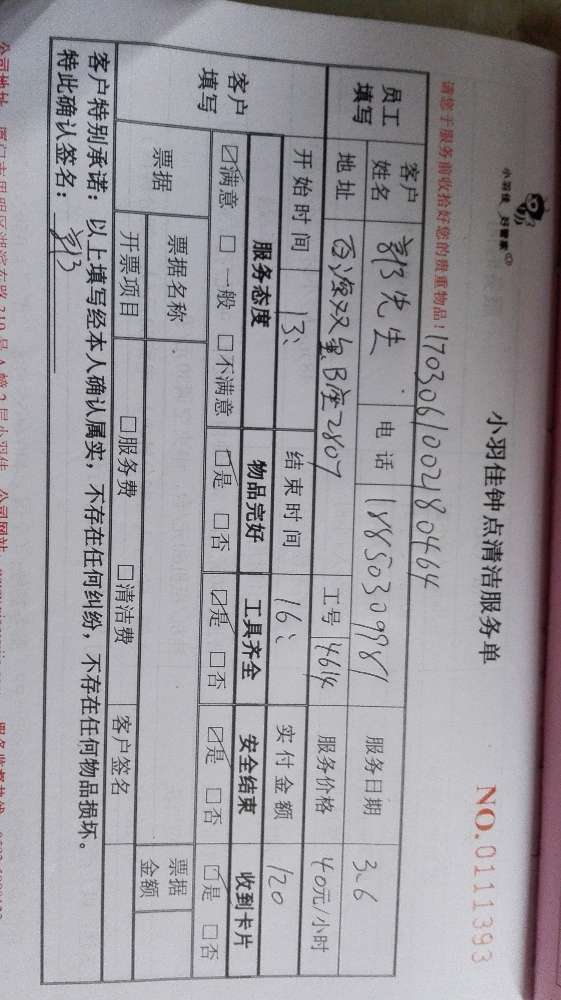 小羽佳 好管家
小羽佳钟点清洁服务单
NO.0111393
请您于服务前收拾好您的贵重物品！
1703061002180464
员工填写
客户姓名 先生 电话 18850309981 服务日期 3.6
地址 双 B座2807 工号 4614 服务价格 40元/小时
客户填写
开始时间 13: 结束时间 16: 实付金额 120
服务态度 物品完好 工具齐全 安全结束 收到卡片
☑满意 □一般 □不满意 ☑是 □否 ☑是 □否 ☑是 □否 ☑是 □否
票据 票据名称 票据金额
开票项目 □服务费 □清洁费 客户签名
客户特别承诺：以上填写经本人确认属实，不存在任何纠纷，不存在任何物品损坏。
特此确认签名：